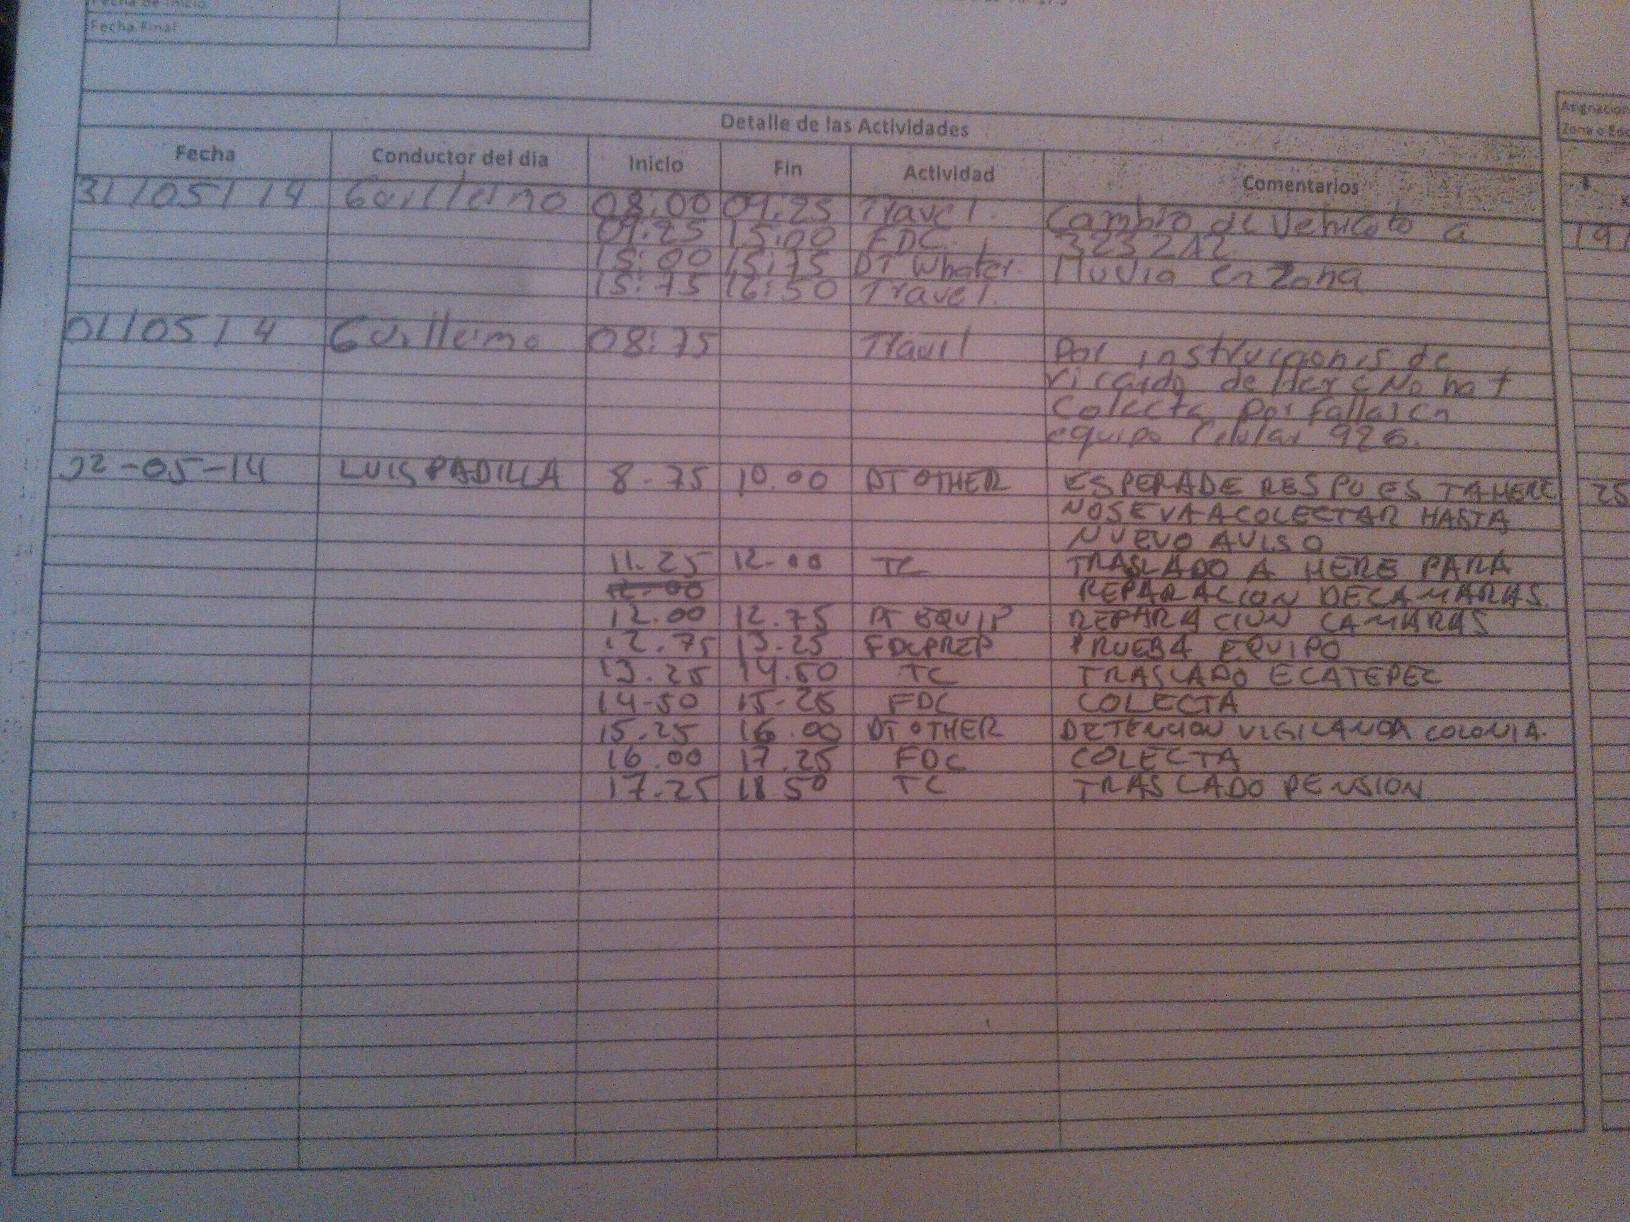 Fecha de Inicio
Fecha Final
Detalle de las Actividades
Fecha Conductor del dia Inicio Fin Actividad Comentarios
31/05/14 Guillermo 08:00 09:25 Travel. Cambio de Vehiculo a
09:25 15:00 FDC. 323ZAZ
15:00 15:75 DT Whater. lluvia en zona
15:75 16:50 Travel.
01/05/14 Guillermo 08:75 Travel Por instrucciones de
ricardo de Here No hay
Colecta por fallas en
equipo Celular 926.
02-05-14 LUIS PADILLA 8.75 10.00 DT OTHER ESPERA DE RESPUESTA HERE
NO SE VA A COLECTAR HASTA
NUEVO AVISO
11.25 12.00 TC TRASLADO A HERE PARA
12.00 REPARACION DE CAMARAS.
12.00 12.75 DT EQUIP REPARACION CAMARAS
12.75 13.25 FDCPREP PRUEBA EQUIPO
13.25 14.50 TC TRASLADO ECATEPEC
14.50 15.25 FDC COLECTA
15.25 16.00 DT OTHER DETENCION VIGILANCIA COLONIA.
16.00 17.25 FDC COLECTA
17.25 18 50 TC TRASLADO PENSION
Asignacion